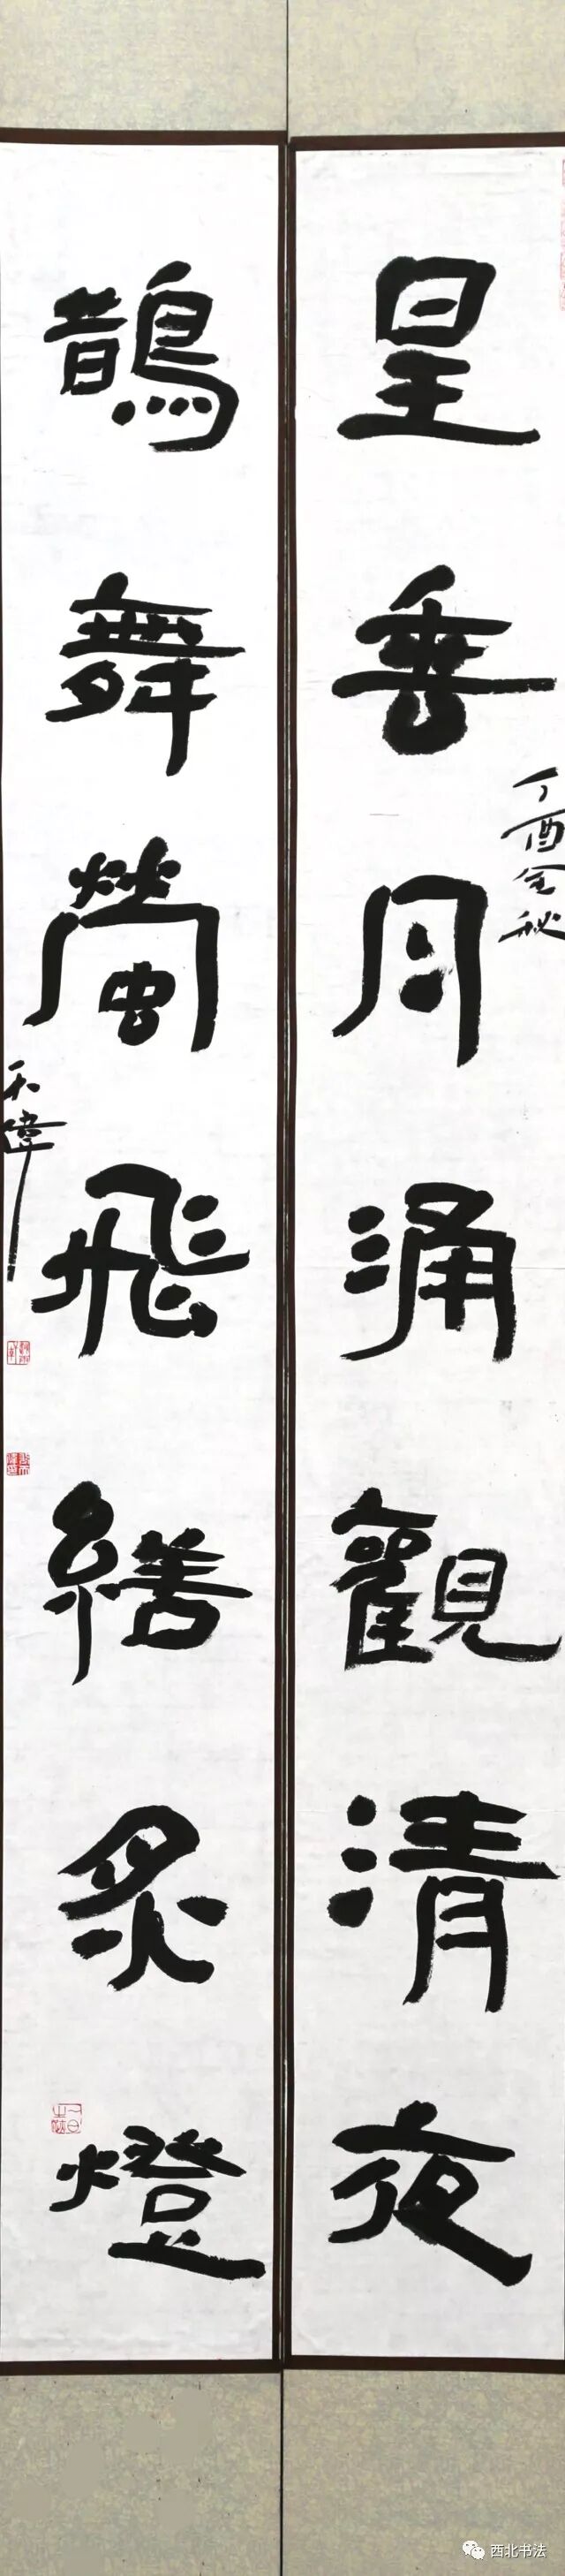 星垂月涌觀清夜
丁酉金秋
鵲舞螢飛繕炙燈
西北书法